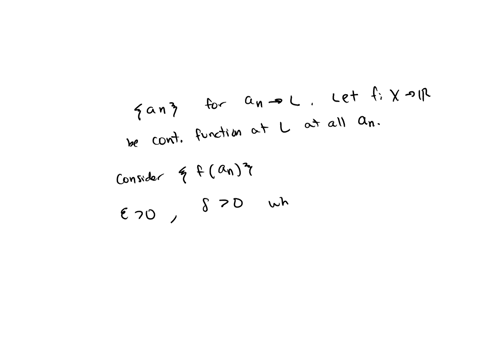 {an} for an → L. Let f: X → ℝ
be cont. function at L at all an.
Consider {f(an)}
ε>0, δ>0 wh